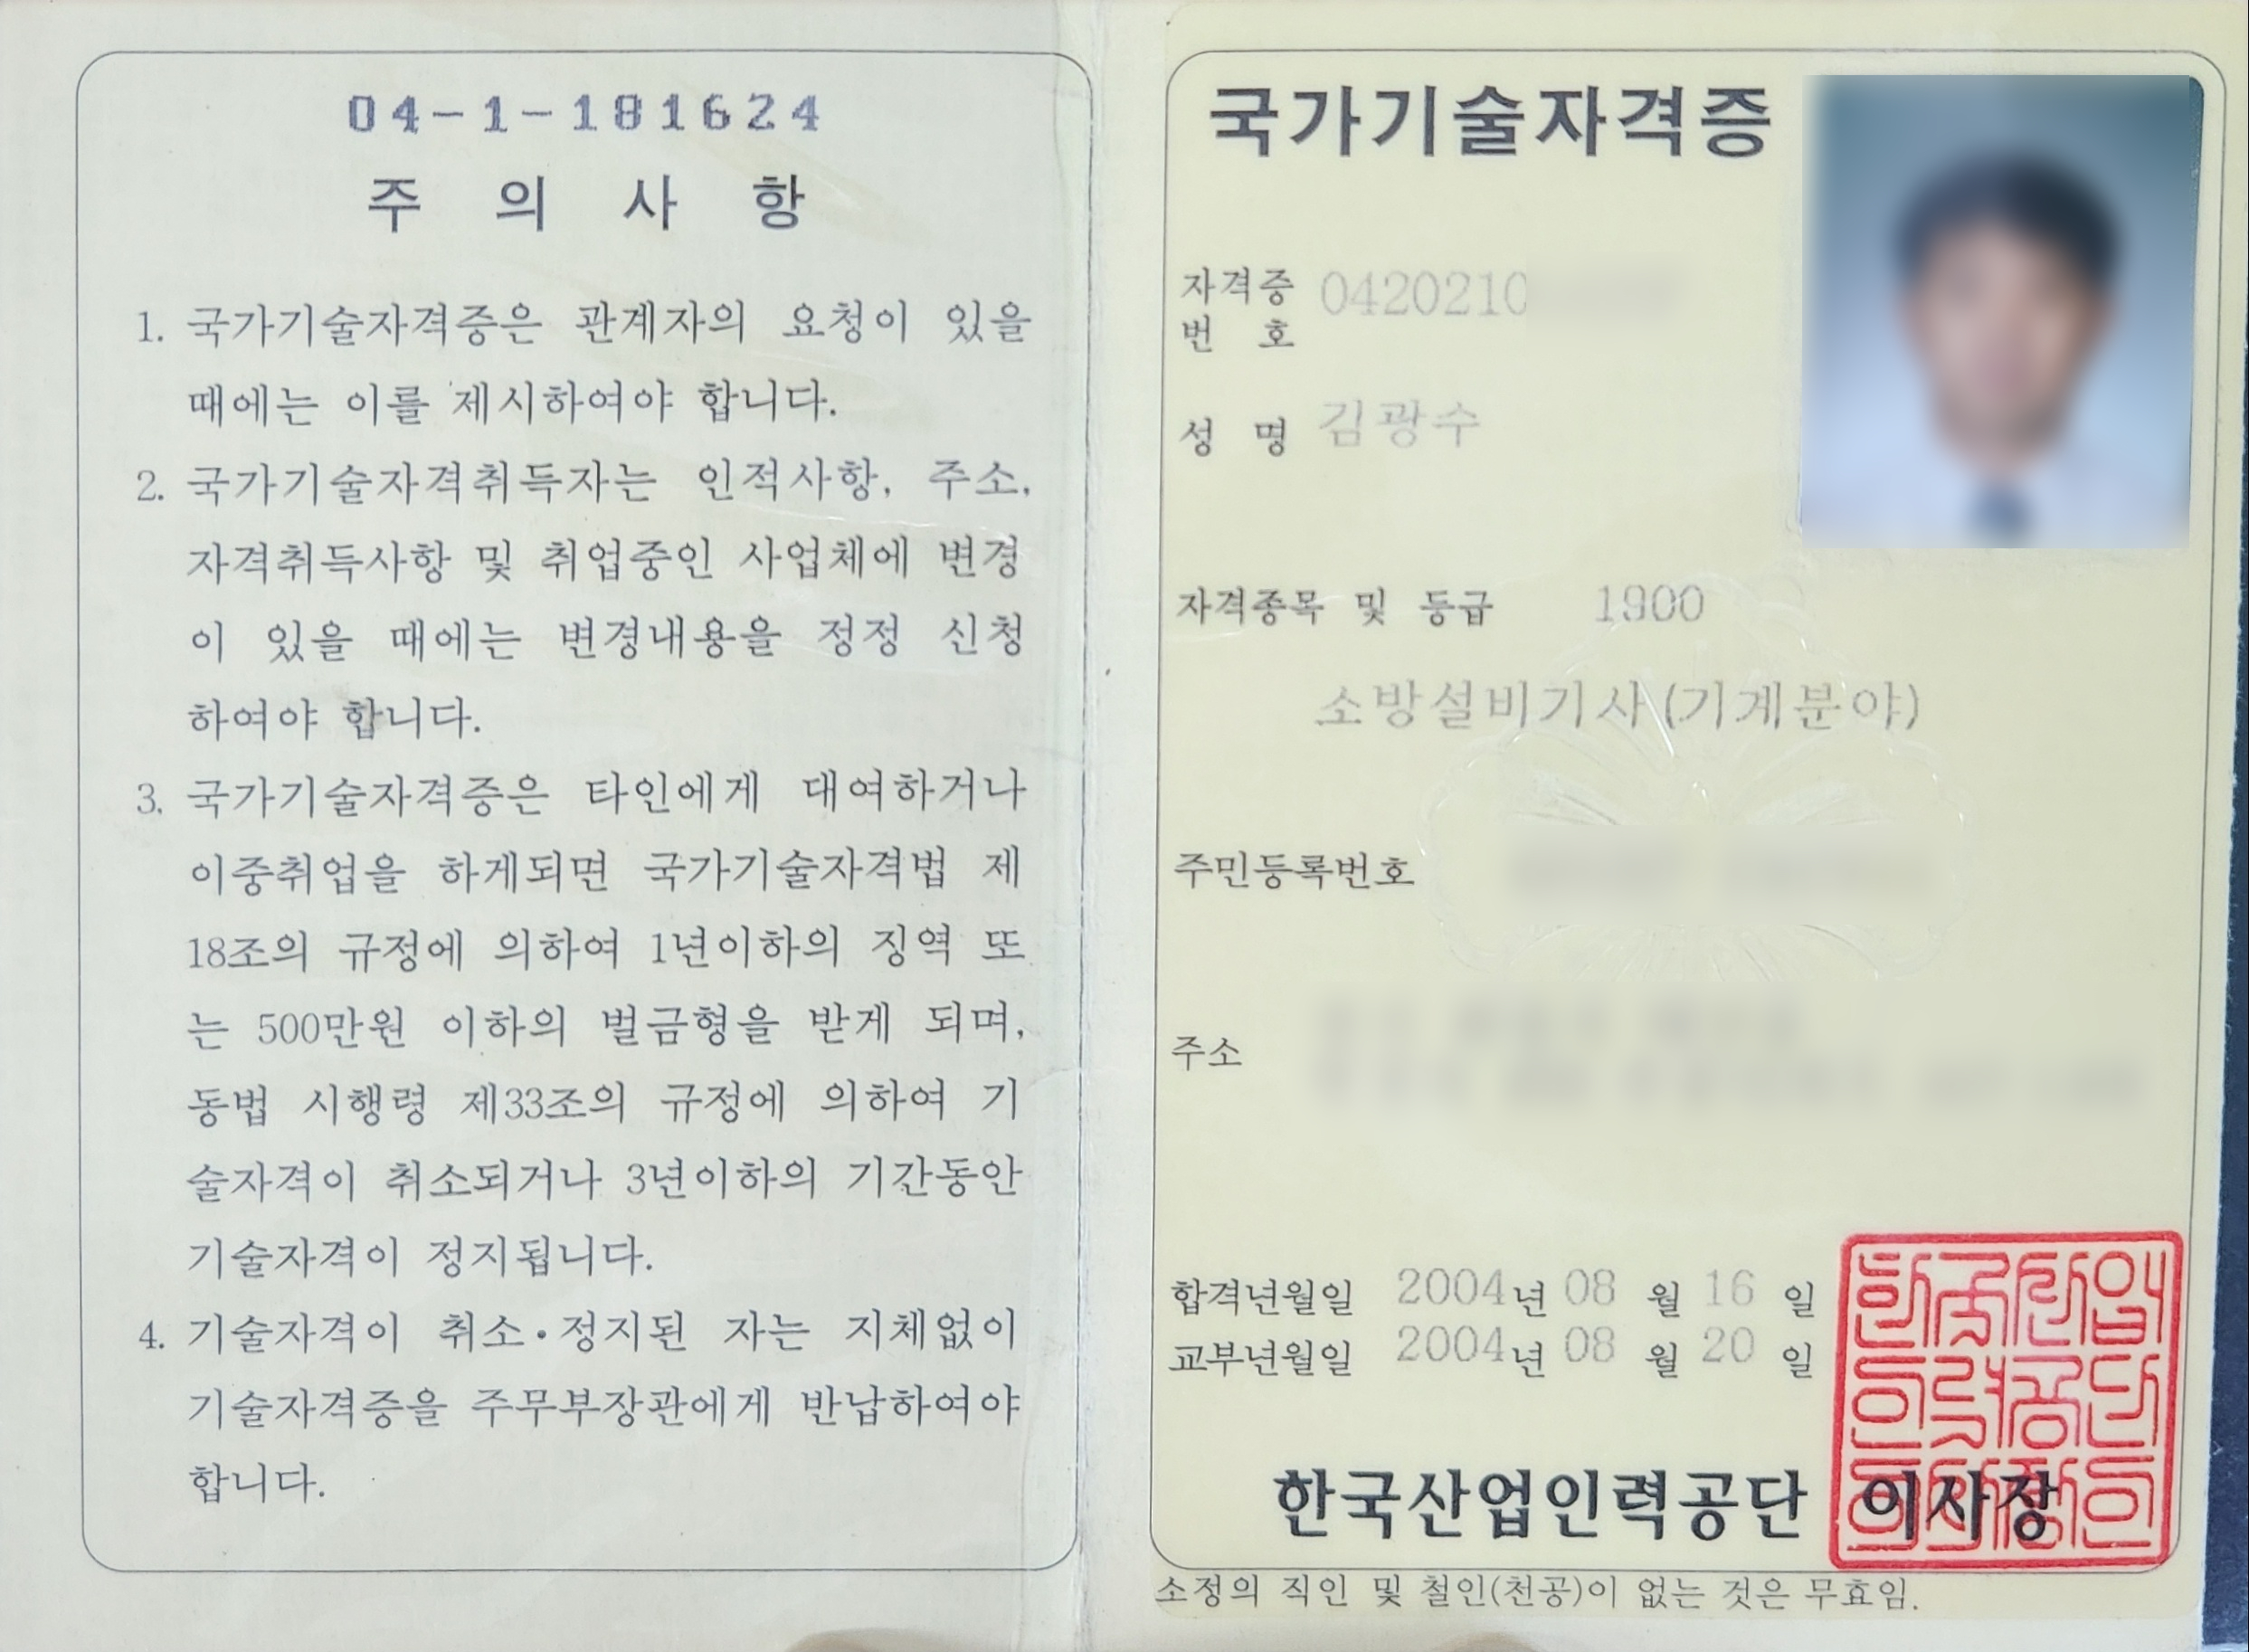 04-1-181624
주 의 사 항
1. 국가기술자격증은 관계자의 요청이 있을
때에는 이를 제시하여야 합니다.
2. 국가기술자격취득자는 인적사항, 주소,
자격취득사항 및 취업중인 사업체에 변경
이 있을 때에는 변경내용을 정정 신청
하여야 합니다.
3. 국가기술자격증은 타인에게 대여하거나
이중취업을 하게되면 국가기술자격법 제
18조의 규정에 의하여 1년이하의 징역 또
는 500만원 이하의 벌금형을 받게 되며,
동법 시행령 제33조의 규정에 의하여 기
술자격이 취소되거나 3년이하의 기간동안
기술자격이 정지됩니다.
4. 기술자격이 취소•정지된 자는 지체없이
기술자격증을 주무부장관에게 반납하여야
합니다.
국가기술자격증
자격증 번 호 0420210
성 명 김광수
자격종목 및 등급 1900
소방설비기사(기계분야)
주민등록번호
주소
합격년월일 2004년 08 월 16 일
교부년월일 2004년 08 월 20 일
한국산업인력공단 이사장
한국산업
인력공단
이사장인
소정의 직인 및 철인(천공)이 없는 것은 무효임.